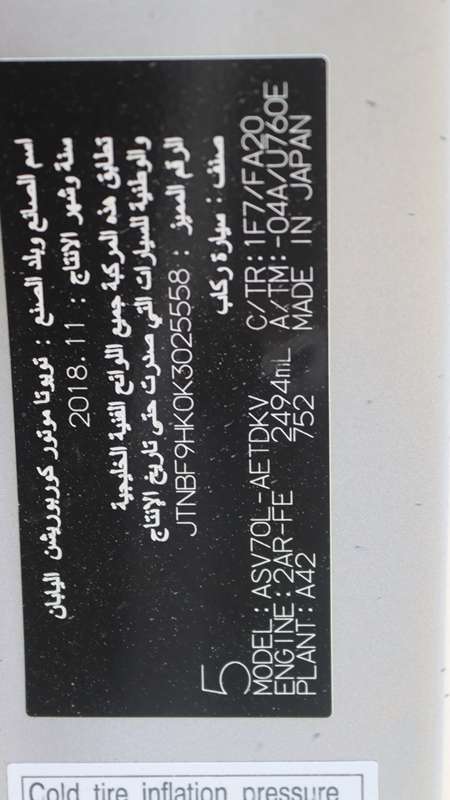 اسم الصانع وبلد الصنع : تويوتا موتور كوربوريشن اليابان
سنة وشهر الإنتاج : 2018.11
تطابق هذه المركبة جميع اللوائح الفنية الخليجية
والوطنية للسيارات التي صدرت حتى تاريخ الإنتاج
الرقم المميز : JTNBF9HK0K3025558
صنف : سيارة ركاب
5
MODEL:ASV70L-AETDKV C/TR:1F7/FA20
ENGINE:2AR-FE 2494mL A/TM:-04A/U760E
PLANT:A42 752 MADE IN JAPAN
Cold tire inflation pressure